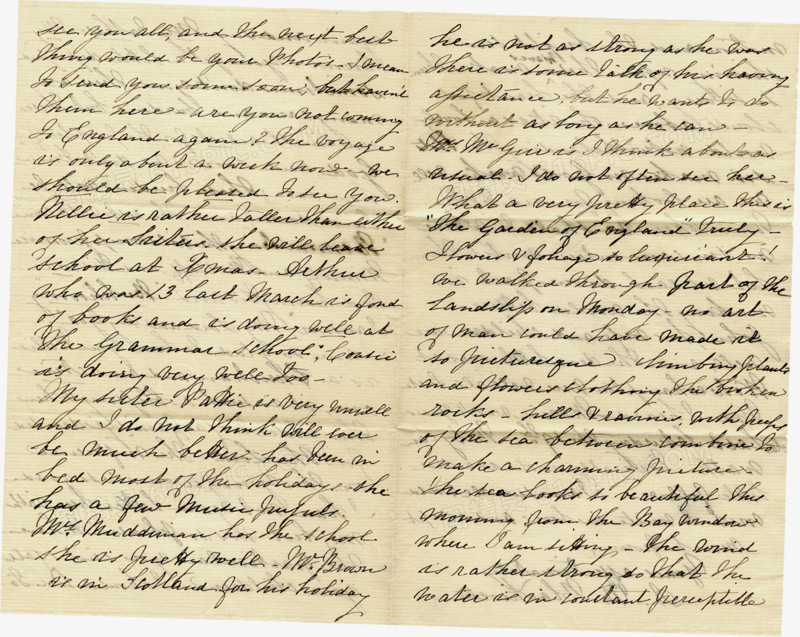 see you all, and the next best
thing would be your Photos - I mean
to send you some soon, but haven't
them here - are you not coming
to England again? the voyage
is only about a week now we
should be pleased to see you.
Nellie is rather taller than either
of her Sisters she will leave
school at Xmas. Arthur
who was 13 last March is fond
of books and is doing well at
the Grammar School;
is doing very well too -
My sister Pattie is very unwell
and I do not think will ever
be much better has been in
bed most of the holidays she
has a few Music pupils.
Mrs Muddiman has the school
she is pretty well - Mr Brown
is in Scotland for his holiday
he is not as strong as he was
there is some talk of his having
assistance, but he wants to do
without as long as he can -
is I think about as
usual I do not often see her -
What a very pretty place this is
"The Garden of England" truly -
Flowers & foliage so luxuriant!
We walked through part of the
Landslip on Monday - no art
of man could have made it
so picturesque. climbing plants
and flowers clothing the broken
rocks - hills & ravines, with peeps
of the sea between combine to
make a charming picture.
The sea looks so beautiful this
morning from the Bay window
where I am sitting - the wind
is rather strong so that the
water is in constant perceptible